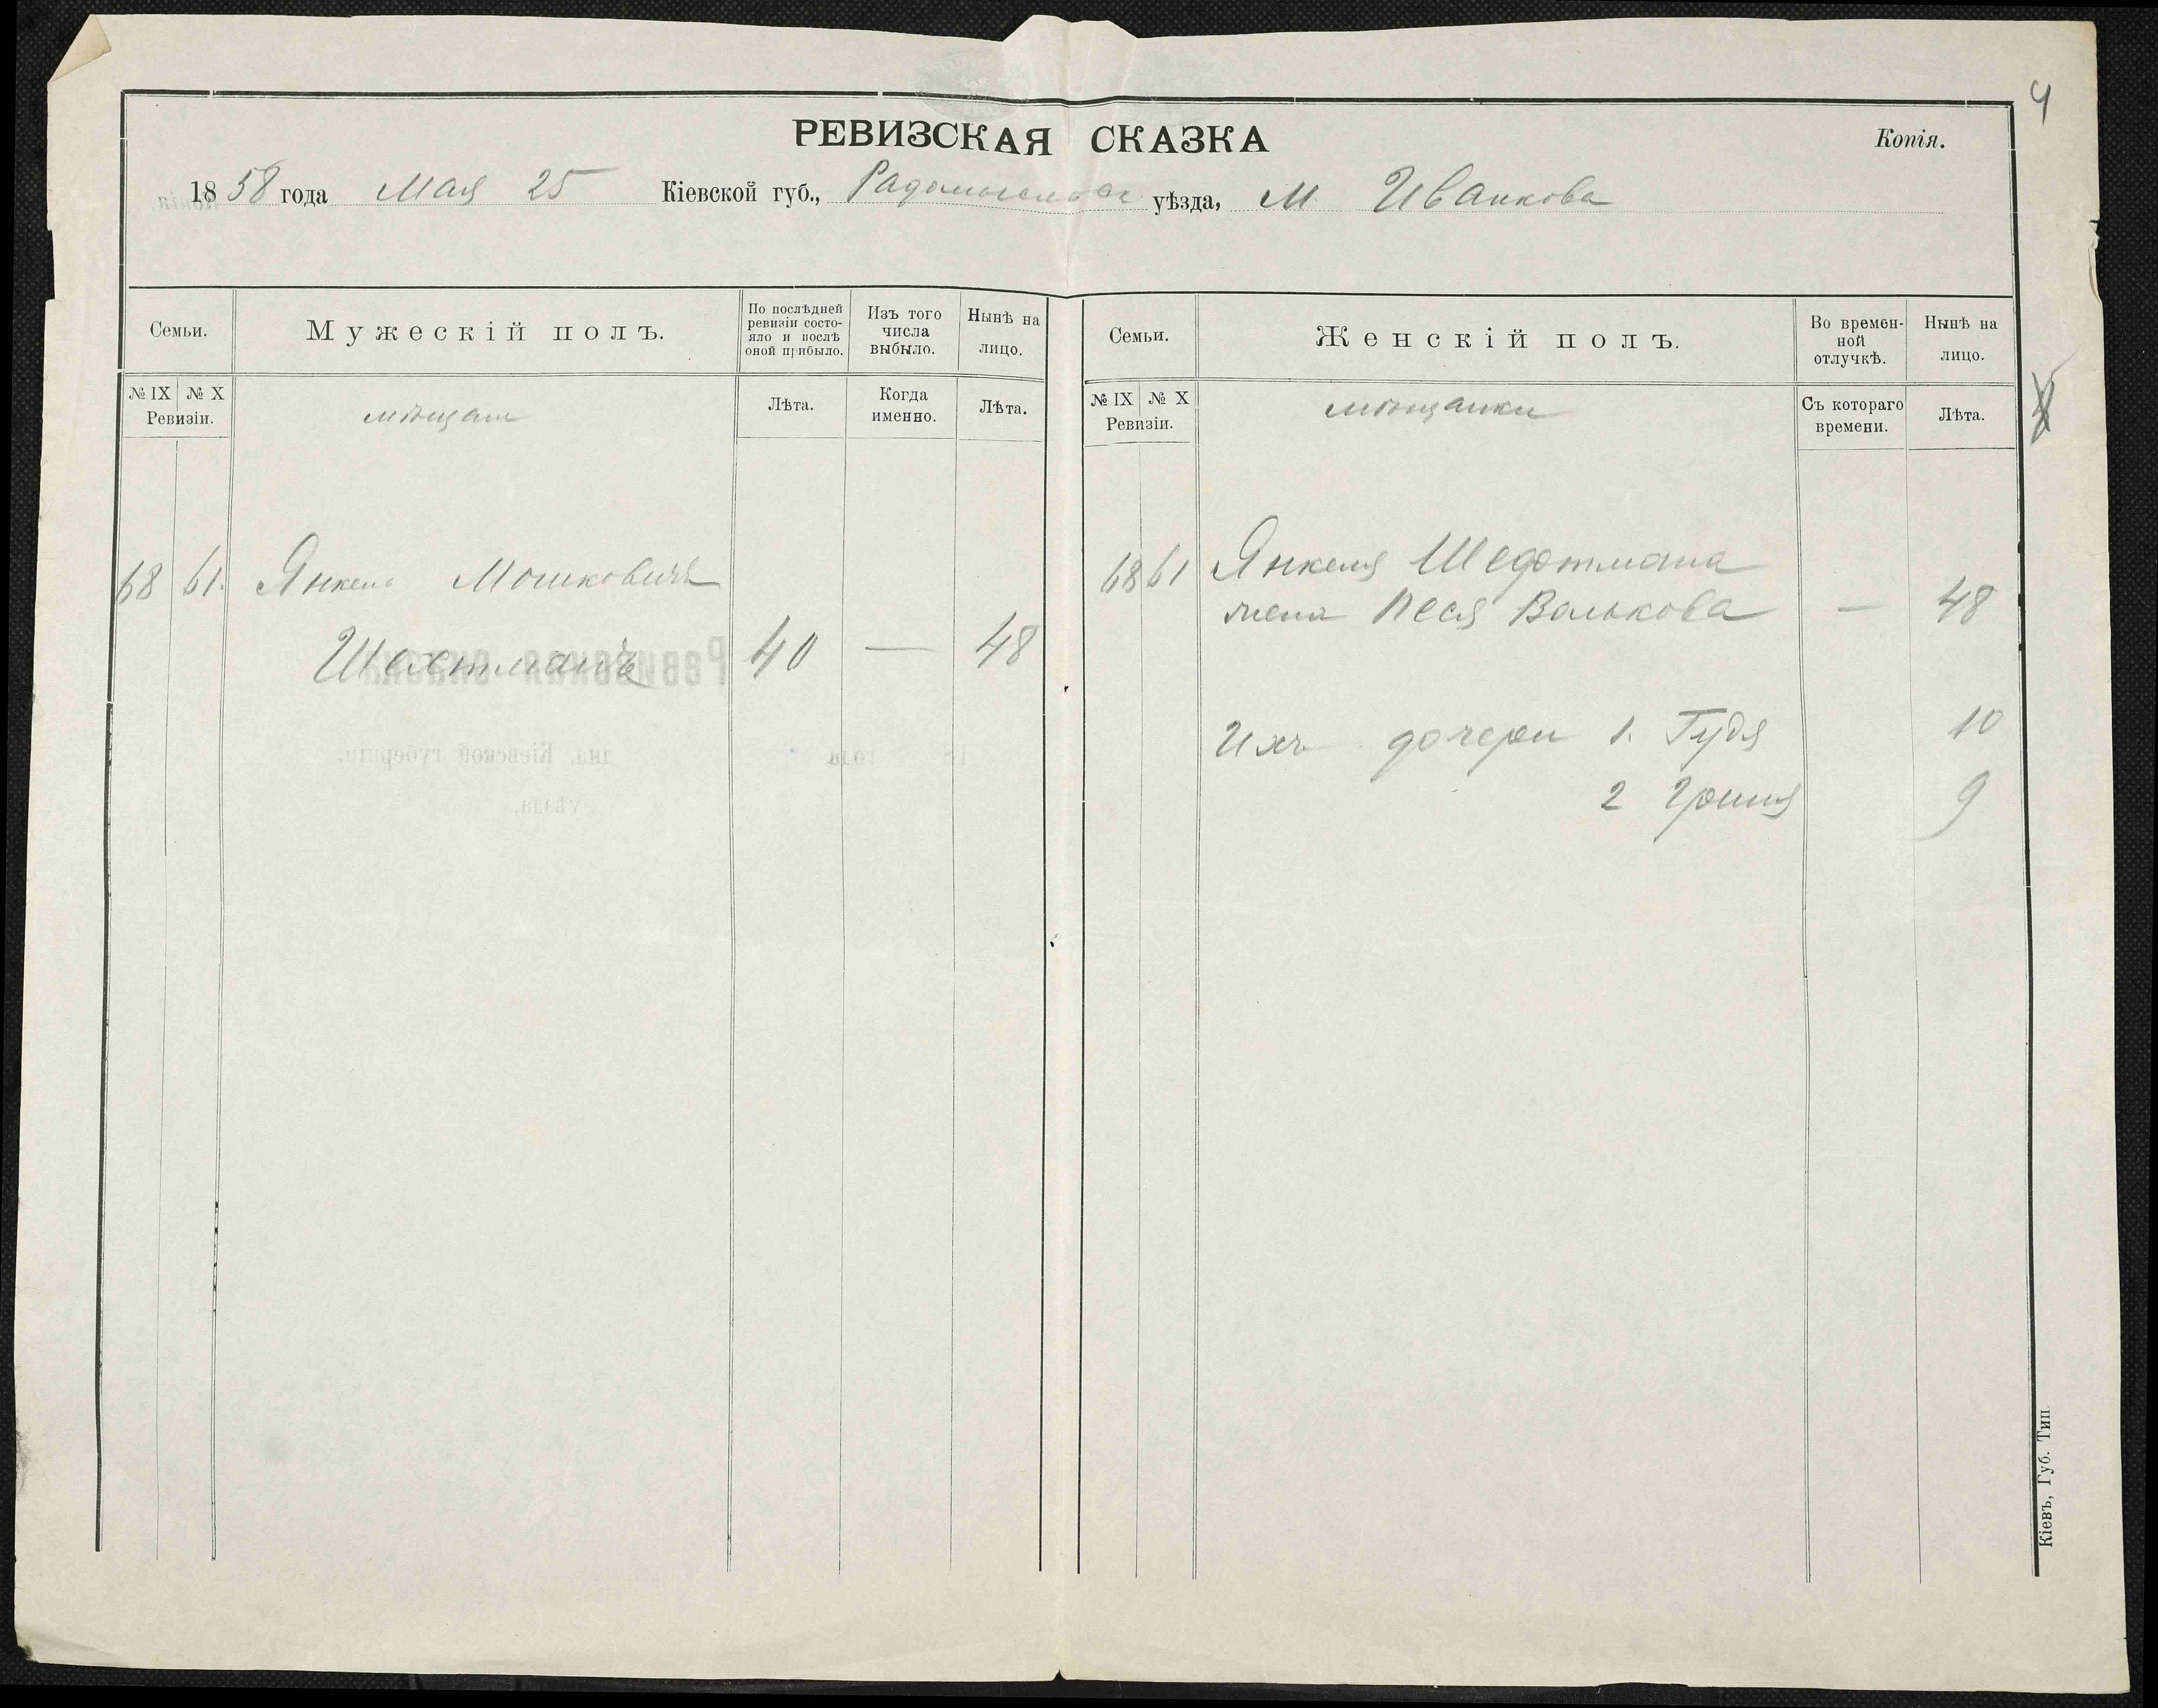 4
РЕВИЗСКАЯ СКАЗКА
Копія.
1858 года Мая 25 Кіевской губ., Радомысльск. уѣзда, М. Иванкова
Семьи.
Мужескій полъ.
По послѣдней ревизіи состо-
яло и послѣ оной прибыло.
Изъ того числа выбыло.
Нынѣ на лицо.
№ IX № X
Ревизіи.
мѣщане
Лѣта.
Когда именно.
Лѣта.
68 61. Янкель Мошковичъ
Шахтманъ 40 — 48
Семьи.
Женскій полъ.
Во времен-
ной
отлучкѣ.
Нынѣ на лицо.
№ IX № X
Ревизіи.
мѣщанки
Съ котораго времени.
Лѣта.
68 61 Янкеля Шехтмана
жена Песя Волькова — 48
Ихъ дочери 1. Гудя 10
2 9
Кіевъ, Губ. Тип.